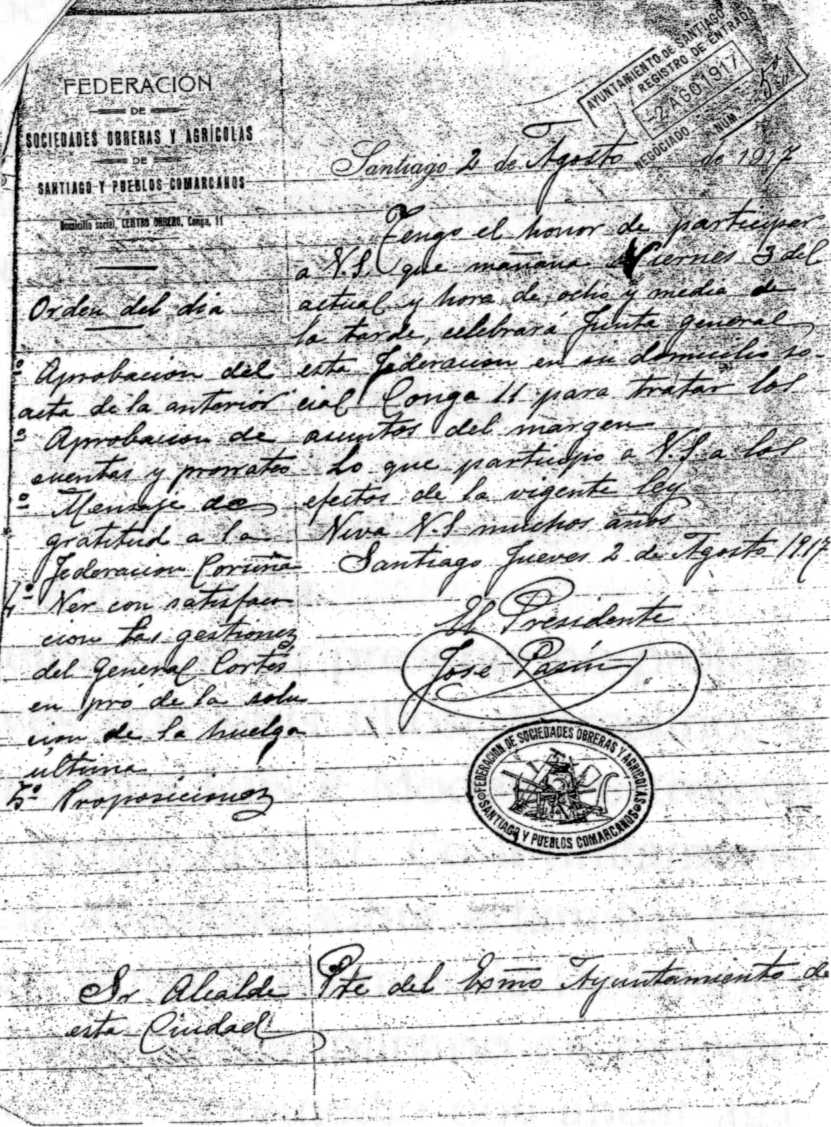 FEDERACIÓN
DE
SOCIEDADES OBRERAS Y AGRÍCOLAS
DE
SANTIAGO Y PUEBLOS COMARCANOS
Domicilio social, CENTRO OBRERO, Conga, 11
AYUNTAMIENTO DE SANTIAGO
REGISTRO DE ENTRADA
2 AGO 1917
NEGOCIADO NÚM
Santiago 2 de Agosto de 1917
Tengo el honor de participar
a V.S. que mañana Viernes 3 del
actual y hora de ocho y media de
la tarde, celebrará Junta general
esta Federacion en su domicilio so-
cial Conga 11 para tratar los
asuntos del margen
Lo que participo a V.S. a los
efectos de la vigente ley
Viva V.S muchos años
Santiago Jueves 2 de Agosto 1917
El Presidente
José Pasín
Orden del dia
Aprobación del
acta de la anterior
Aprobacion de
cuentas y prorrateo
Mensaje de
gratitud a la
Federacion Coruña
4º Ver con satisfac
cion las gestiones
del General Cortés
en pró de la solu
cion de la huelga
última
5º Proposiciones
FEDERACION DE SOCIEDADES OBRERAS Y AGRICOLAS
SANTIAGO Y PUEBLOS COMARCANOS
Sr Alcalde Pte del Exmo Ayuntamiento de
esta Ciudad